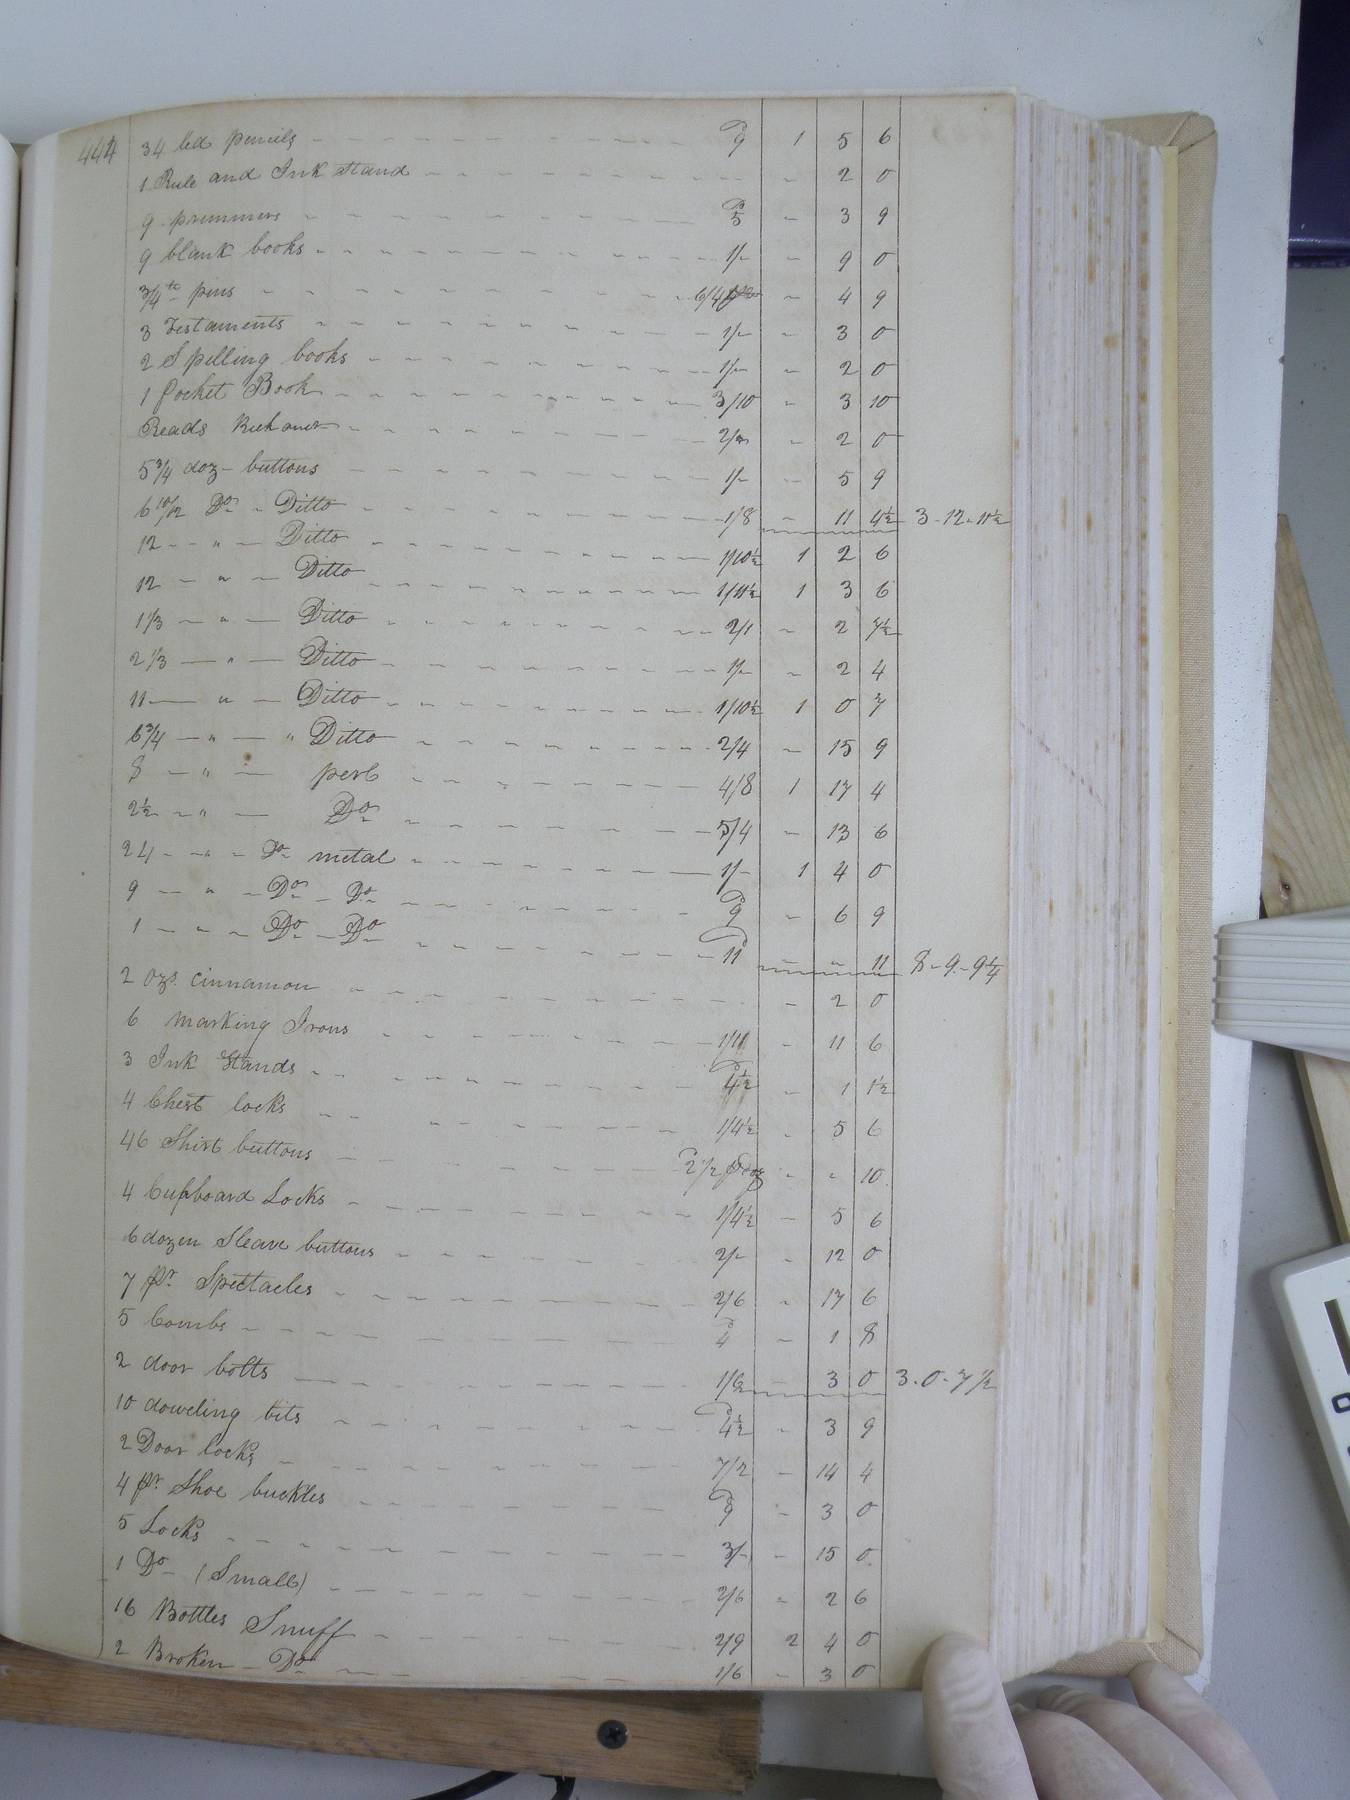 444
34 led pencils 9 1 5 6
1 Rule and Ink Stand - 2 0
9 primmers 5 - 3 9
9 blank books 1/- - 9 0
3/4 lb pins 6/4 - 4 9
3 Testaments 1/- - 3 0
2 Spelling books 1/- - 2 0
1 Pocket Book 3/10 - 3 10
Reads 2/- - 2 0
5 3/4 doz - buttons 1/- - 5 9
6 10/12 Do - Ditto 1/8 - 11 4½ 3-12-11½
12 - " - Ditto 1/10½ 1 2 6
12 - " - Ditto 1/11½ 1 3 6
1 1/3 - " - Ditto 2/1 - 2 7½
2 1/3 - " - Ditto 1/- - 2 4
11 - " - Ditto 1/10½ 1 0 7
6 3/4 - " - " Ditto 2/4 - 15 9
8 - " - perl 4/8 1 17 4
2½ - " - Do 5/4 - 13 6
24 - " - Do metal 1/- 1 4 0
9 - " - Do - Do 9 - 6 9
1 - " - Do - Do 11 - - 11 8-9-9¼
2 ozs. cinnamon - 2 0
6 marking Irons 1/11 - 11 6
3 Ink Stands 4½ - 1 1½
4 Chest locks 1/4½ - 5 6
46 Shirt buttons 2 1/2 doz - - 10
4 Cupboard Locks 1/4½ - 5 6
6 dozen Sleave buttons 2/- - 12 0
7 pr. Spectacles 2/6 - 17 6
5 Combs 4 - 1 8
2 door bolts 1/6 - 3 0 3-0-7½
10 doweling bits 4½ - 3 9
2 Door locks 7/2 - 14 4
4 pr. Shoe buckles 9 - 3 0
5 Locks 3/- - 15 0
1 Do - (Small) 2/6 - 2 6
16 Bottles Snuff 2/9 2 4 0
2 Broken - Do 1/6 - 3 0